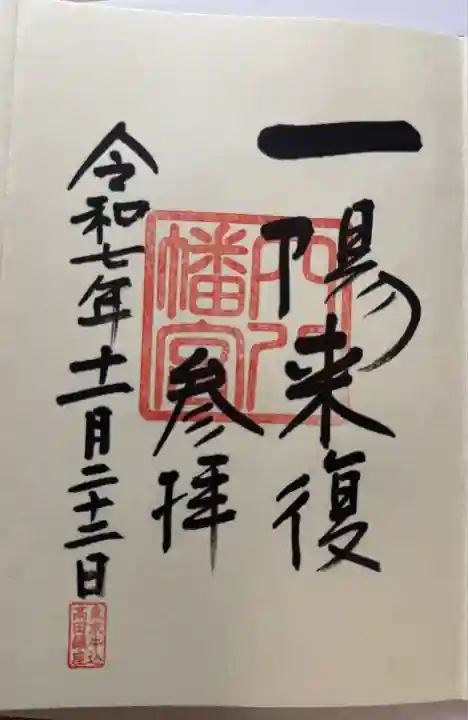 一陽来復
穴八
幡宮
参拝
令和七年十一月二十二日
東京牛込
高田鎮座